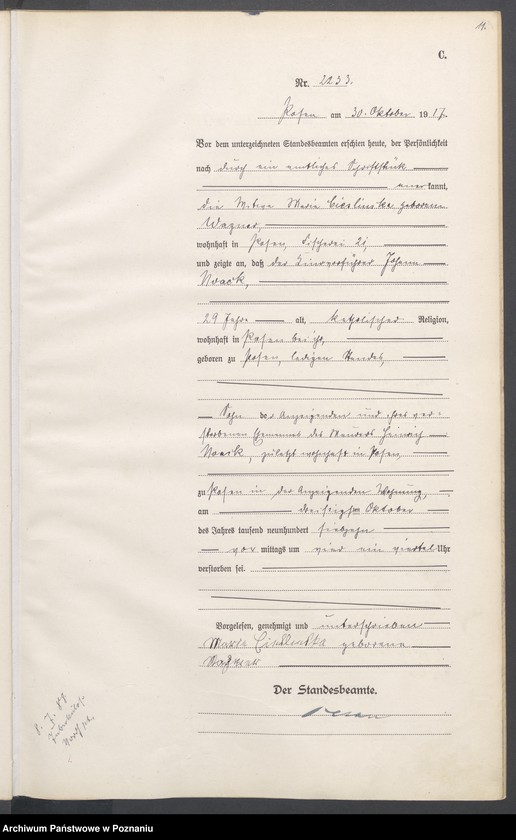 4.
C.
Nr. 2233.
Posen am 30. Oktober 1917.
Vor dem unterzeichneten Standesbeamten erschien heute, der Persönlichkeit
nach durch ein amtliches Schriftstück
anerkannt,
die Witwe Marie Cieslinska geborene
Wagner,
wohnhaft in Posen, Fischerei 21,
und zeigte an, daß der Kinovorführer Johann
Noack,
29 Jahre alt, katholischer Religion,
wohnhaft in Posen bei ihr,
geboren zu Posen, ledigen Standes,
Sohn der Anzeigenden und ihres ver-
storbenen Ehemannes des Maurers Heinrich
Noack, zuletzt wohnhaft in Posen
zu Posen in der Anzeigenden Wohnung,
am dreißigsten Oktober
des Jahres tausend neunhundert siebzehn
vor mittags um vier ein viertel Uhr
verstorben sei.
Vorgelesen, genehmigt und unterschrieben
Marie geborene
Der Standesbeamte.
Archiwum Państwowe w Poznaniu